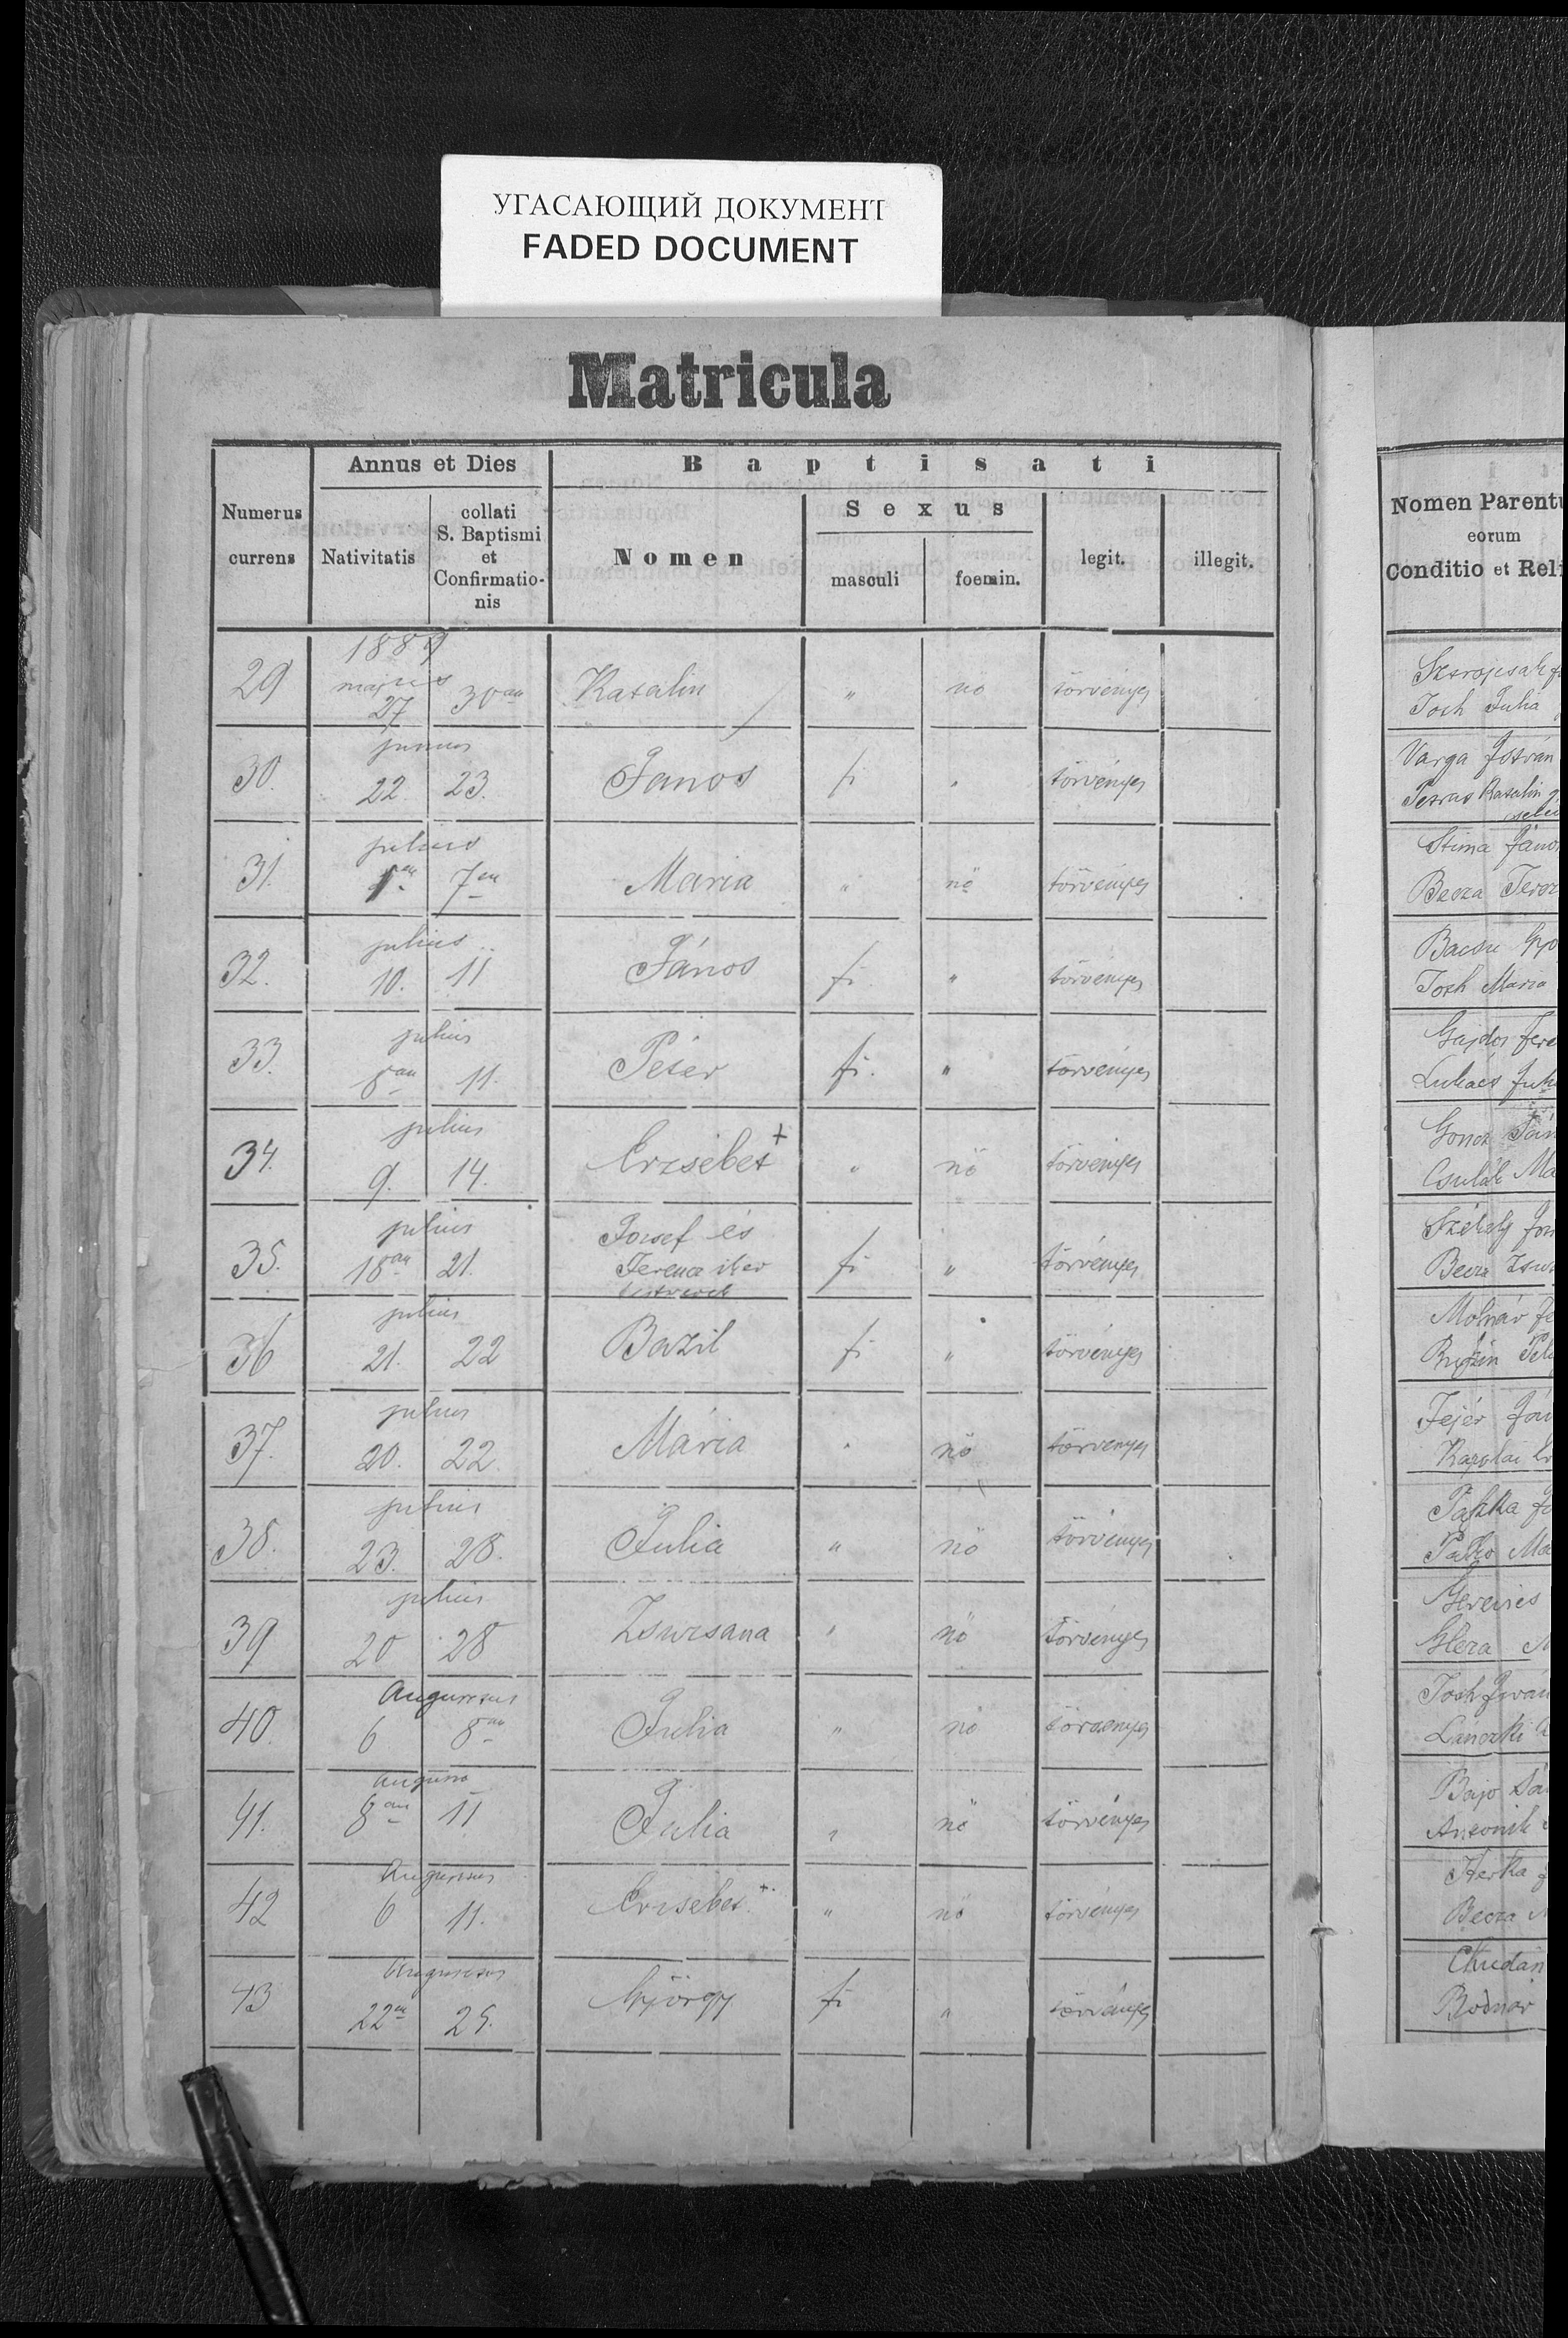 УГАСАЮЩИЙ ДОКУМЕНТ
FADED DOCUMENT
Matricula
Annus et Dies Baptisati
Numerus currens Nativitatis collati S. Baptismi et Confirmatio-nis Nomen Sexus masculi foemin. legit. illegit.
1889
29 majus 27 30án Katalin " nö törvényes
30. junius 22. 23. Janos fi " törvényes
31. julius 7én Maria " nö törvényes
32. julius 10. 11 János fi " törvényes
33. julius 8án 11. Péter fi. " törvényes
34. julius 9. 14. Erzsébet + " nö törvényes
35. julius 18án 21. Josef és
Ferencz iker
testverek fi " törvényes
36 julius 21. 22 Bazil fi " törvényes
37. julius 20. 22. Mária " nö törvényes
38. julius 23. 28. Julia " nö törvényes
39 julius 20 28 Zsuzsana " nö törvényes
40. Augustus 6 8án Julia " nö törvényes
41. 8án 11 Julia " nö törvényes
42 Augustus 6 11. Erzsebet + " nö törvényes
43 Augustus 22én 25. György fi " törvényes
Nomen Parent
eorum
Conditio et Reli
Toth Julia
Varga István
Petras Katalin
Stima Jáno
Becza Terez
Bacsu
Toth Maria
Gajdos Fere
Lukács
Csulák Ma
Székely
Becza Zsu
Molnár
Fejér
Ma
Toth Iván
Lánczki
Bajo
Antonik
Herka
Becza
Chudán
Bodnar